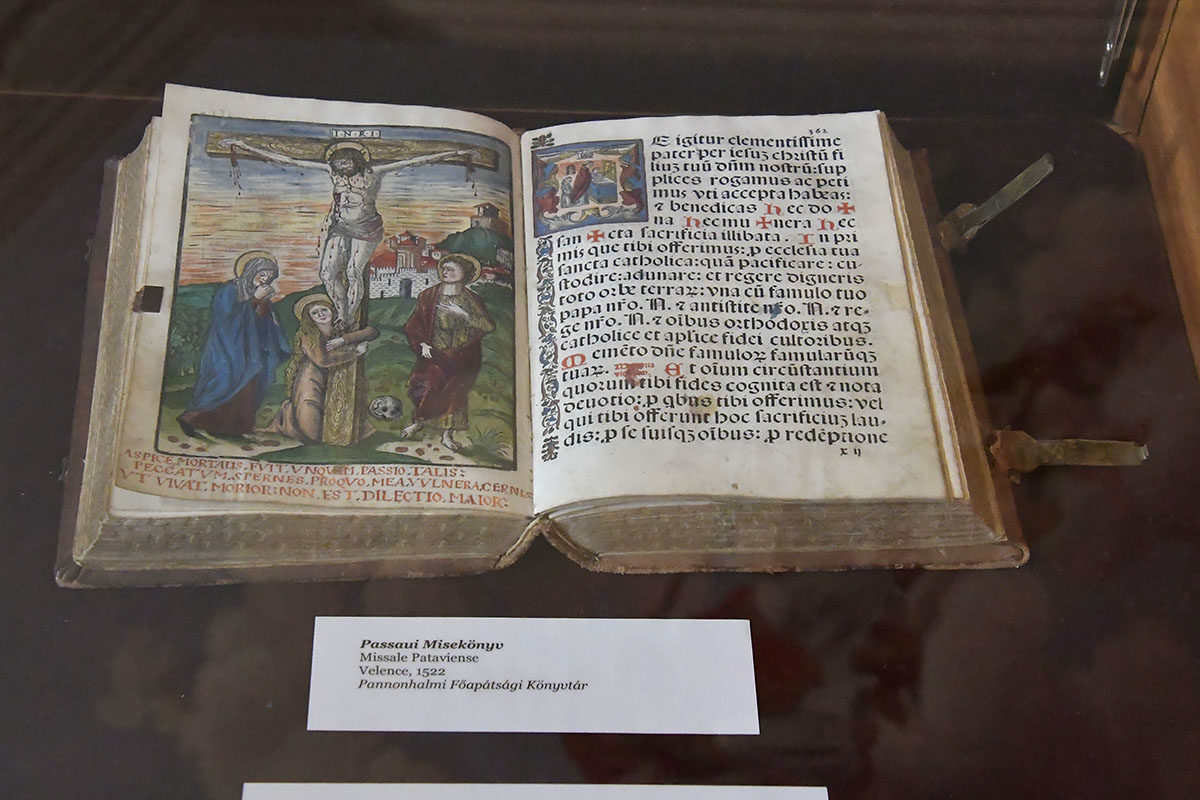 I·N·R·I
ASPICE, MORTALIS, FVIT, VNQVAM, PASSIO, TALIS:
PECCATVM, SPERNES, PROQVO, MEA, VVLNERA, CERNIS
VT VIVAT, MORIOR: NON, EST, DILECTIO, MAIOR:
362
E igitur clementissime
pater: per iesuz christū fi
liuz tuū dn̄m nostrū: sup
plices rogamus ac peti
mus vti accepta habeas:
⁊ benedicas hec do ✠
na hec mu ✠ nera hec
san ✠ cta sacrificia illibata. In pri
mis que tibi offerimus: ꝑ ecclesia tua
sancta catholica: quā pacificare: cu-
stodire: adunare: et regere digneris
toto orbe terraꝝ: vna cū famulo tuo
papa nr̄o. N. ⁊ antistite nr̄o. N. ⁊ re-
ge nr̄o. N. ⁊ oībus orthodoxis atqꝫ
catholice et apl̄ice fidei cultoribus.
Memēto dn̄e famuloꝝ famularūqꝫ
tuaꝝ. Et oīum circūstantium
quorum tibi fides cognita est ⁊ nota
deuotio: ꝑ qbus tibi offerimus: vel
qui tibi offerunt hoc sacrificiuz lau-
dis: ꝑ se suisqꝫ oībus: ꝑ redēptione
x ij
Passaui Misekönyv
Missale Pataviense
Velence, 1522
Pannonhalmi Főapátsági Könyvtár